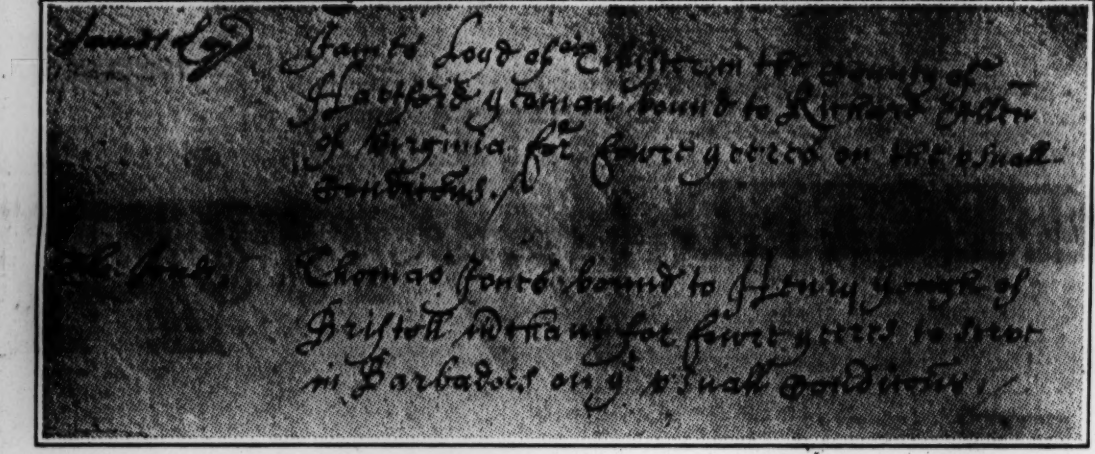 James Loyd James Loyd of in the County of
Hartford yeoman bound to Richard Allen
of Virginia for fowre yeeres on the vsuall
Condicons.
Tho: Jones, Thomas Jones bound to Henry Gough of
Bristoll mchant for fowre yeeres to serve
in Barbadoes on ye vsuall Condicons.